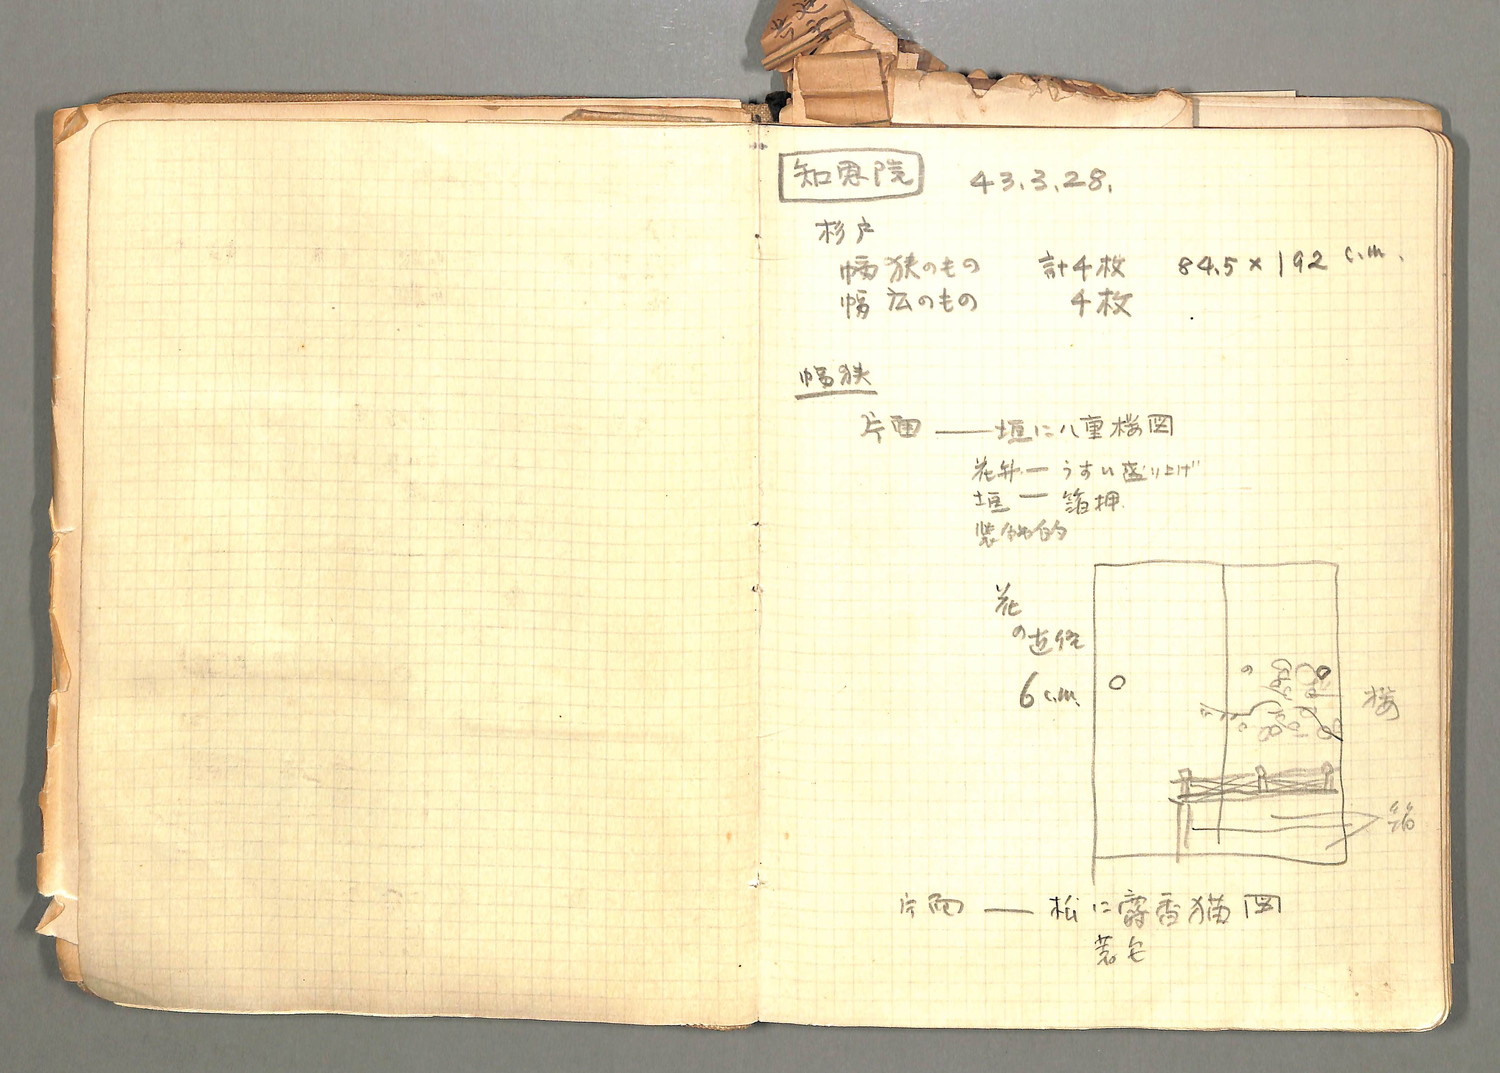 知恩院 43.3.28.
杉戸
幅狭のもの 計4枚 84.5×192 c.m.
幅広のもの 4枚
幅狭
片面 ── 垣に八重桜図
花弁 ─ うすい盛り上げ
垣 ─ 箔押
装飾的
花
の直径
6 c.m.
桜
箔
片面 ── 松に麝香猫図